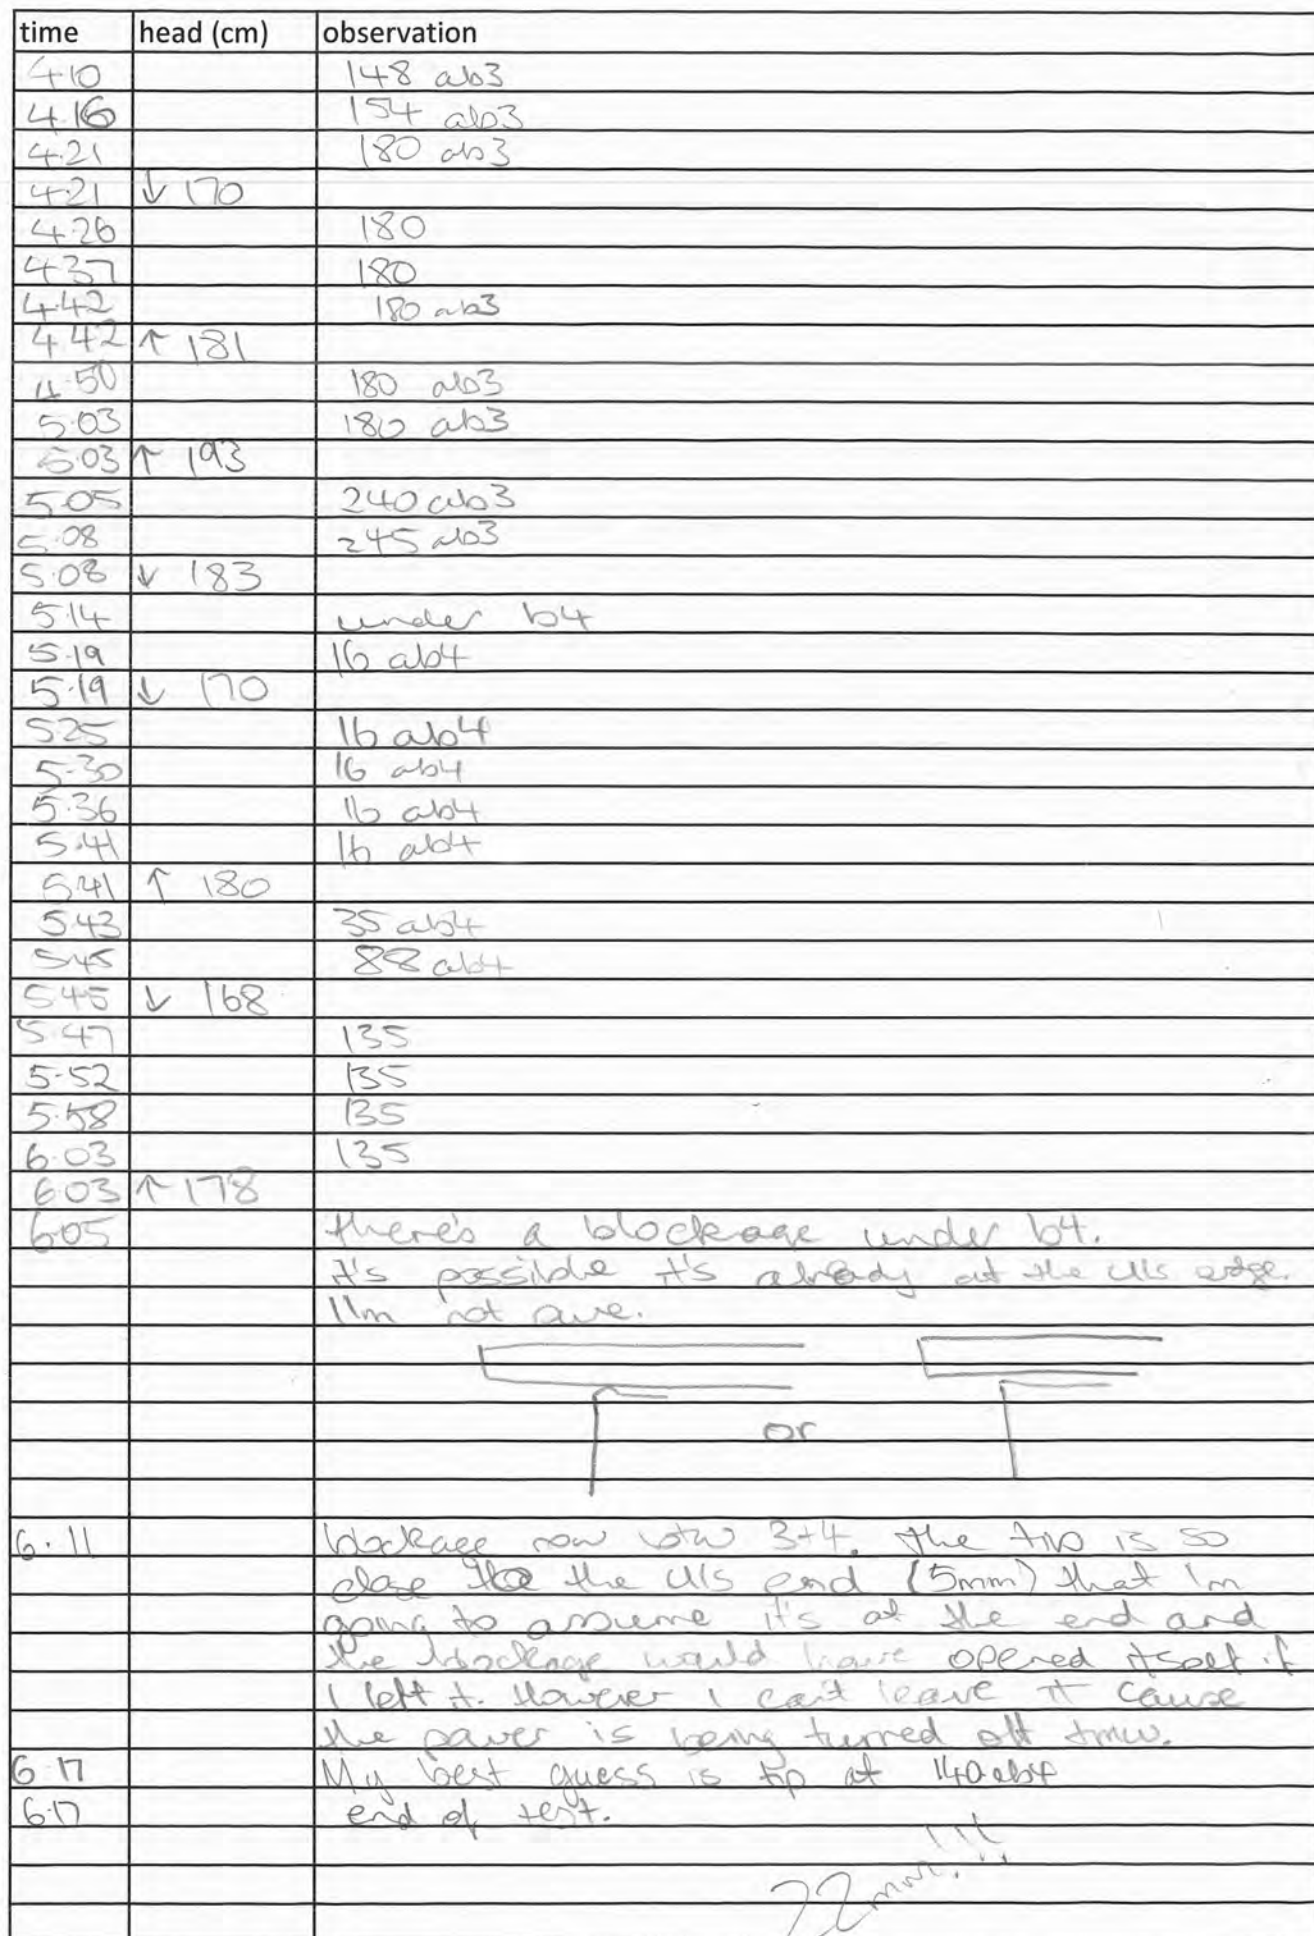 time head (cm) observation
4.10 148 ab3
4.16 154 ab3
4.21 180 ab3
4.21 ↓ 170
4.26 180
4.37 180
4.42 180 ab3
4.42 ↑ 181
4.50 180 ab3
5.03 180 ab3
5.03 ↑ 193
5.05 240 ab3
5.08 245 ab3
5.08 ↓ 183
5.14 under b4
5.19 16 ab4
5.19 ↓ 170
5.25 16 ab4
5.30 16 ab4
5.36 16 ab4
5.41 16 ab4
5.41 ↑ 180
5.43 35 ab4
5.45 88 ab4
5.45 ↓ 168
5.47 135
5.52 135
5.58 135
6.03 135
6.03 ↑ 178
6.05 there's a blockage under b4.
it's possible it's already at the U/s edge.
I'm not sure.
or
6.11 blockage now btw 3+4. the tip is so
close to the U/s end (5mm) that I'm
going to assume it's at the end and
the blockage would have opened itself if
I left it. However I can't leave it cause
the power is being turned off tmw.
6.17 My best guess is tip at 140 ab4
6.17 end of test.
22mm!!!